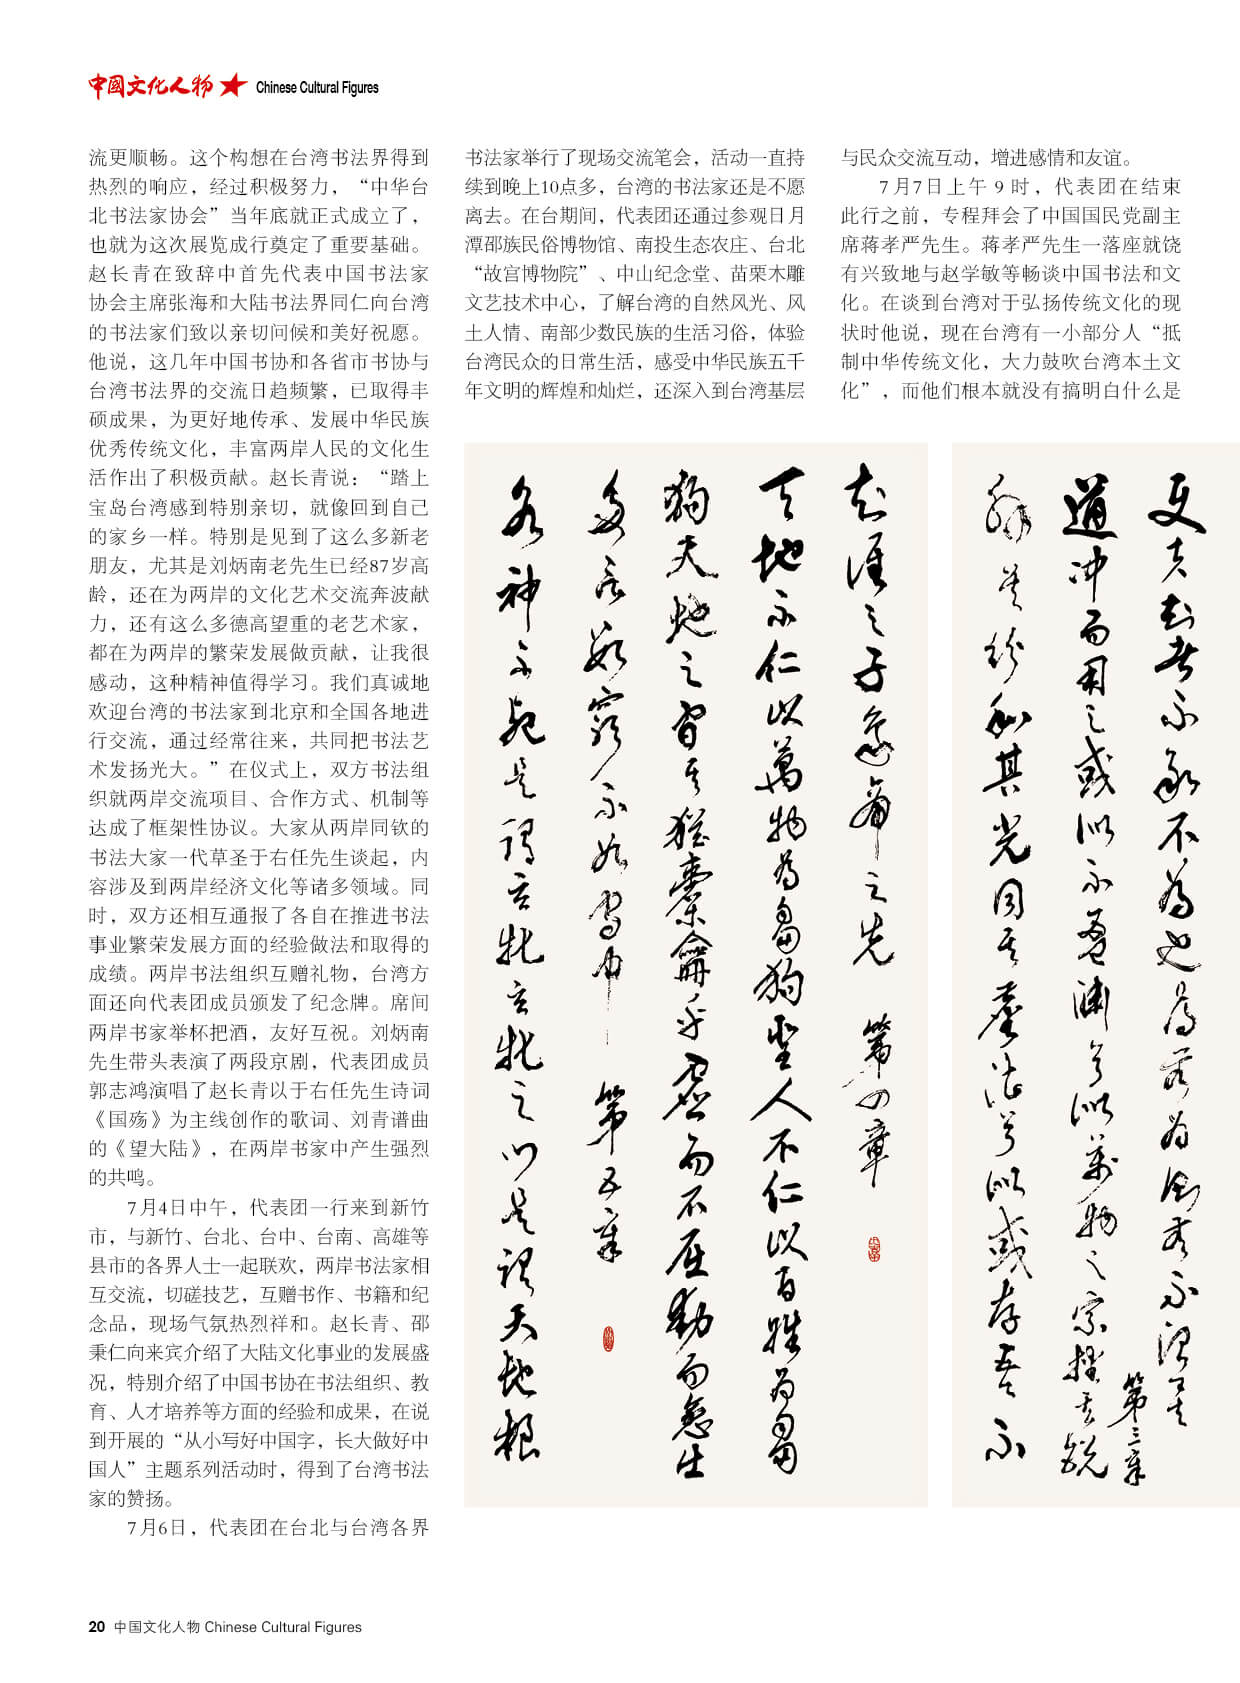 中國文化人物 Chinese Cultural Figures
流更顺畅。这个构想在台湾书法界得到
热烈的响应，经过积极努力，“中华台
北书法家协会”当年底就正式成立了，
也就为这次展览成行奠定了重要基础。
赵长青在致辞中首先代表中国书法家
协会主席张海和大陆书法界同仁向台湾
的书法家们致以亲切问候和美好祝愿。
他说，这几年中国书协和各省市书协与
台湾书法界的交流日趋频繁，已取得丰
硕成果，为更好地传承、发展中华民族
优秀传统文化，丰富两岸人民的文化生
活作出了积极贡献。赵长青说：“踏上
宝岛台湾感到特别亲切，就像回到自己
的家乡一样。特别是见到了这么多新老
朋友，尤其是刘炳南老先生已经87岁高
龄，还在为两岸的文化艺术交流奔波献
力，还有这么多德高望重的老艺术家，
都在为两岸的繁荣发展做贡献，让我很
感动，这种精神值得学习。我们真诚地
欢迎台湾的书法家到北京和全国各地进
行交流，通过经常往来，共同把书法艺
术发扬光大。”在仪式上，双方书法组
织就两岸交流项目、合作方式、机制等
达成了框架性协议。大家从两岸同钦的
书法大家一代草圣于右任先生谈起，内
容涉及到两岸经济文化等诸多领域。同
时，双方还相互通报了各自在推进书法
事业繁荣发展方面的经验做法和取得的
成绩。两岸书法组织互赠礼物，台湾方
面还向代表团成员颁发了纪念牌。席间
两岸书家举杯把酒，友好互祝。刘炳南
先生带头表演了两段京剧，代表团成员
郭志鸿演唱了赵长青以于右任先生诗词
《国殇》为主线创作的歌词、刘青谱曲
的《望大陆》，在两岸书家中产生强烈
的共鸣。
7月4日中午，代表团一行来到新竹
市，与新竹、台北、台中、台南、高雄等
县市的各界人士一起联欢，两岸书法家相
互交流，切磋技艺，互赠书作、书籍和纪
念品，现场气氛热烈祥和。赵长青、邵
秉仁向来宾介绍了大陆文化事业的发展盛
况，特别介绍了中国书协在书法组织、教
育、人才培养等方面的经验和成果，在说
到开展的“从小写好中国字，长大做好中
国人”主题系列活动时，得到了台湾书法
家的赞扬。
7月6日，代表团在台北与台湾各界
书法家举行了现场交流笔会，活动一直持
续到晚上10点多，台湾的书法家还是不愿
离去。在台期间，代表团还通过参观日月
潭邵族民俗博物馆、南投生态农庄、台北
“故宫博物院”、中山纪念堂、苗栗木雕
文艺技术中心，了解台湾的自然风光、风
土人情、南部少数民族的生活习俗，体验
台湾民众的日常生活，感受中华民族五千
年文明的辉煌和灿烂，还深入到台湾基层
与民众交流互动，增进感情和友谊。
7月7日上午 9 时，代表团在结束
此行之前，专程拜会了中国国民党副主
席蒋孝严先生。蒋孝严先生一落座就饶
有兴致地与赵学敏等畅谈中国书法和文
化。在谈到台湾对于弘扬传统文化的现
状时他说，现在台湾有一小部分人“抵
制中华传统文化，大力鼓吹台湾本土文
化”，而他们根本就没有搞明白什么是
夫知者不敢不為也為無為則無不治矣
第三章
道冲而用之或似不盈渊兮似萬物之宗挫其銳
解其紛和其光同其塵湛兮似或存吾不
知誰之子象帝之先 第四章
天地不仁以萬物為芻狗聖人不仁以百姓為芻
狗天地之間其猶橐籥乎虛而不屈動而愈出
多言數窮不如守中 第五章
谷神不死是謂玄牝玄牝之門是謂天地根
20 中国文化人物 Chinese Cultural Figures